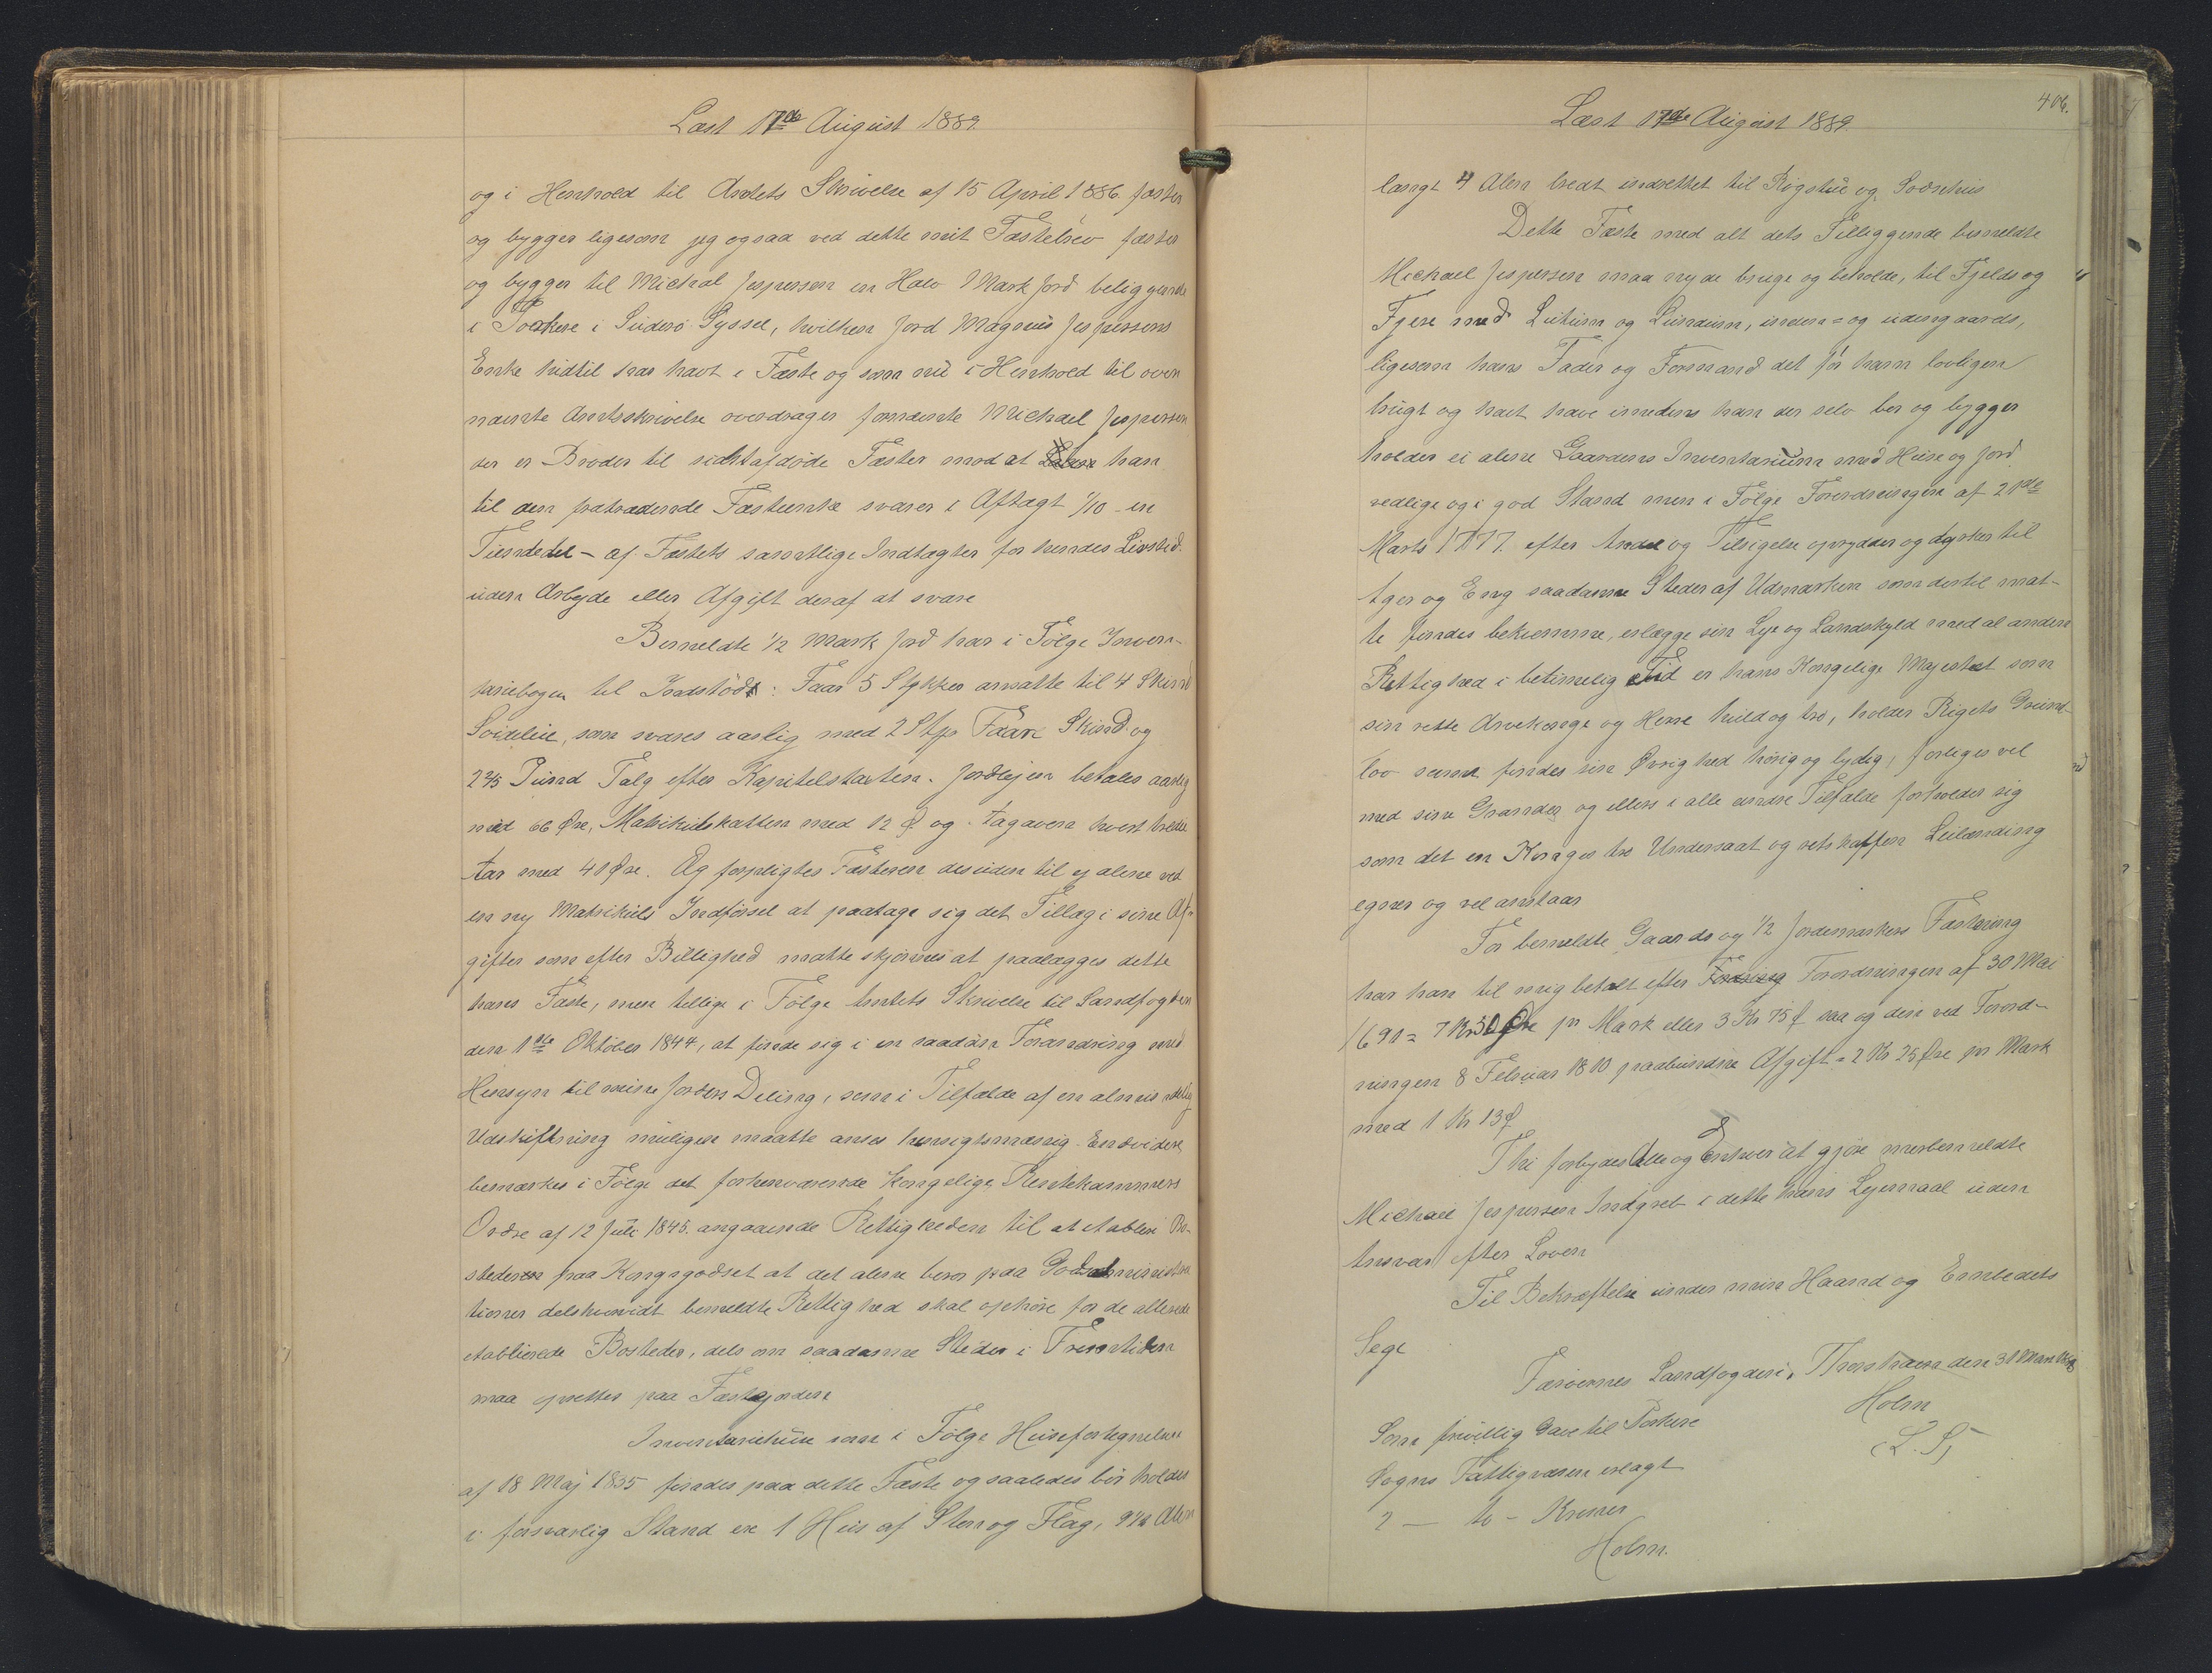 Læst 17de August 1889.
og i Henhold til Amtets Skrivelse af 15 April 1886. fæster
og bygger ligesom jeg ogsaa ved dette mit Fæstebrev fæster
og bygger til Michael Jespersen en Halv Mark Jord beliggende
i Porkere i Suderö Syssel, hvilken Jord Magnus Jespersens
Enke hidtil har havt i Fæste og som nu i Henhold til oven
nævnte Amtsskrivelse overdrages fornævnte Michael Jespersen
der er Broder til sidstafdöde Fæster mod at han
til den fratrædende Fæsteenke svarer i Aftægt 1/10 - en
Tiendedel - af Fæstets samtlige Indtægter for hendes Livstid
uden Arbejde eller Afgift deraf at svare
Bemeldte 1/2 Mark Jord har i Fölge Inven-
tariebogen til Indstöds: Faar 5 Stykker ansatte til 4 Skind
Landleie, som svares aarlig med 2 Stk Faare Skind og
2 2/5 Pund Talg efter Kapitelstaxten. Jordlejen betales aarlig
med 66 Øre, Matrikulskatten med 12 Ø og Tagaven hvert tredie
Aar med 40 Øre. Og forpligtes Fæsteren desuden til ej alene ved
en ny Matrikuls Indförsel at paatage sig det Tillæg i sine Af-
gifter som efter Billighed maatte skjönnes at paalægges dette
hans Fæste, men tillige i Fölge Amtets Skrivelse til Landfogden
den 1ste Oktober 1844, at finde sig i en saadan Forandring med
Hensyn til sine Jorders Deling, som i Tilfælde af en almindelig
Udskiftning muligen maatte anses hensigtsmæssig. Endvidere
bemærkes i Fölge det forhenværende Kongelige Rentekammers
Ordre af 12 Juli 1845. angaaende Rettigheden til at etablere Bo-
stederen paa Kongsgodset at det alene beror paa Godsadministra
tionen dels hvorvidt bemeldte Rettighed skal ophöre for de allerede
etablerede Bosteder, dels om saadanne Steder i Fremtiden
maa oprettes paa Fæstejorden
Inventariehuse som i Fölge Husefortegnelsen
af 18 Maj 1835 findes paa dette Fæste og saaledes bör holdes
i forsvarlig Stand ere 1 Hus af Sten og Flag, 9 1/2 Alen
406.
Læst 17de August 1889
langt 4 Alen bredt indrettet til Rögstue og Sovehus
Dette Fæste med alt dets Tilliggende bemeldte
Michael Jespersen maa nyde bruge og beholde, til Fjelds og
Fjere med Lutum og Lundum, inden- og udengaards,
ligesom hans Fader og Formand det för ham lovligen
brugt og havt have imedens han der selv bor og bygger
holder ei alene Gaardens Inventarium med Huse og Jord
vedlige og i god Stand men i Fölge Forordningen af 21de
Marts 1777. efter Andel og Tilsigelse oprydder og dyrker til
Ager og Eng saadanne Steder af Udmarken som dertil maat-
te findes bekvemme, erlægge sin Leje og Landskyld med al anden
Rettighed i betimelig Tid er hans Kongelige Majestæt som
sin rette Arvekonge og Herre huld og tro, holder Rigets Grund-
lov samt findes sin Øvrighed hörig og lydig, forliges vel
med sine Grander og ellers i alle andre Tilfælde forholder sig
som det en Konges tro Undersaat og retskaffen Leilænding
egner og vel anstaar
For bemeldte Gaards og 1/2 Jordemarkens Fæstning
har han til mig betalt efter Forordningen af 30 Mai
1690 = 7 Kr 50 Øre pr Mark eller 3 Kr 75 Ø saa og den ved Forord-
ningen 8 Februar 1810 paabudne Afgift = 2 Kr 25 Øre pr Mark
med 1 Kr 13 Ø
Thi forbydes Alle og Enhver at gjöre merbemeldte
Michael Jespersen Indgreb i dette hans Lejemaal uden
Ansvar efter Loven
Til Bekræftelse under min Haand og Embedets
Segl
Færöernes Landfogderi, Thorshavn den 31 Mai
Holm
(L. S)
Som frivillig Gave til Porkere
Sogns Fattigvæsen erlagt
2 - to - Kroner
Holm.